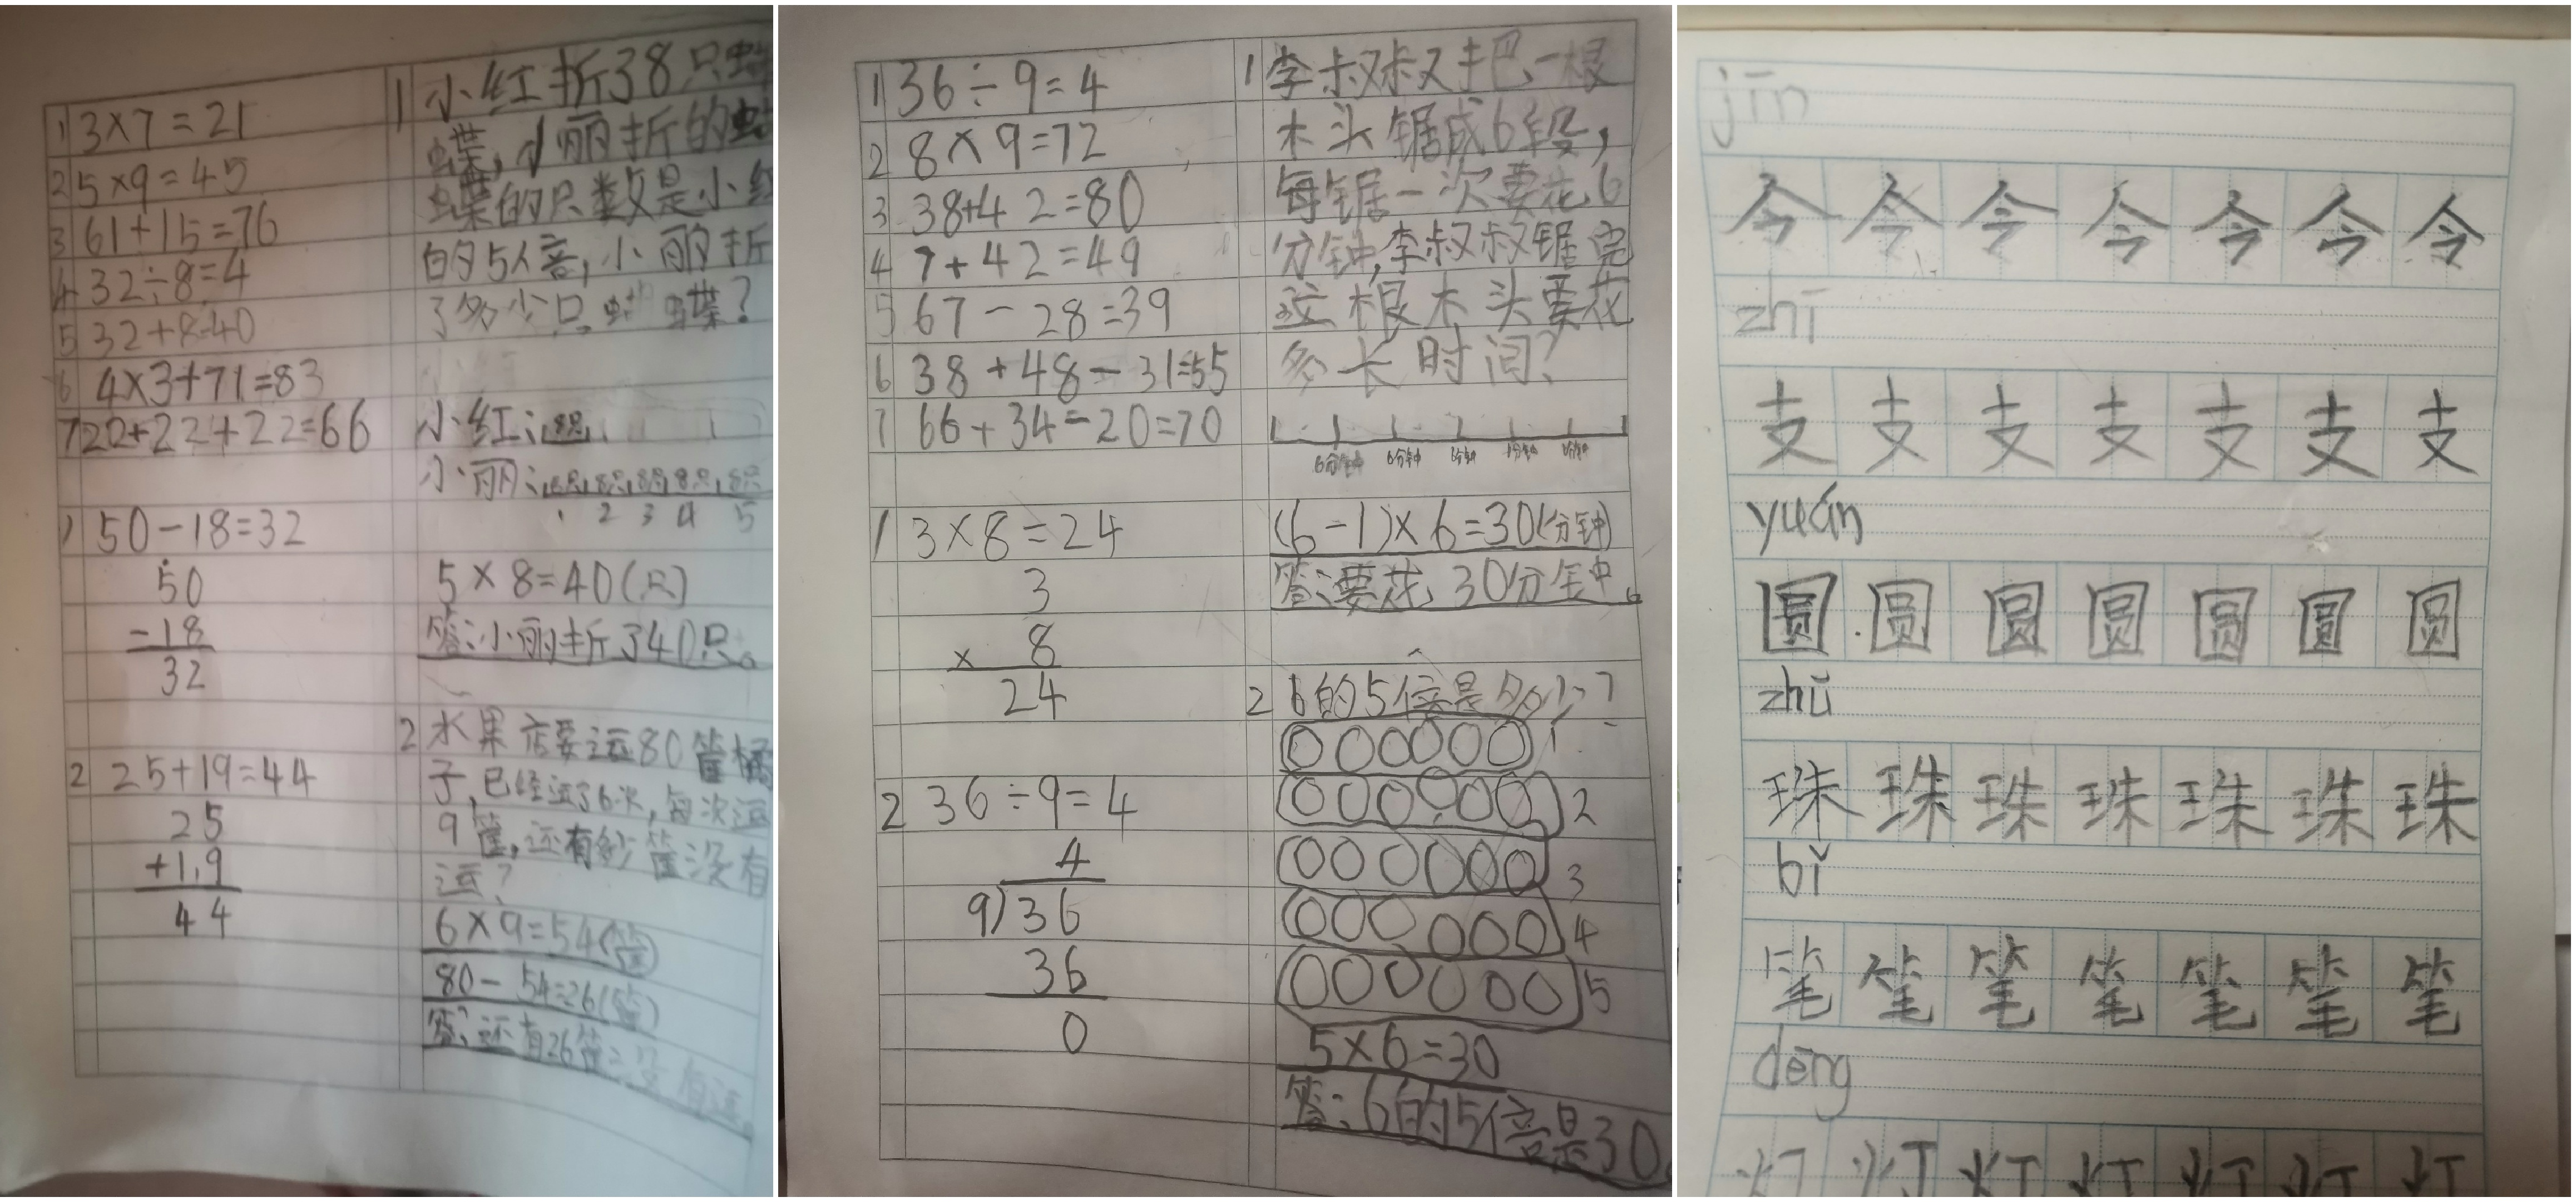 1 3×7=21
2 5×9=45
3 61+15=76
4 32÷8=4
5 32+8=40
6 4×3+71=83
7 22+22+22=66
1 50-18=32
50
-18
32
2 25+19=44
25
+19
44
1 小红折了8只蝴
蝶,小丽折的蝴
蝶的只数是小红
的5倍,小丽折
了多少只蝴蝶?
小红:8只
小丽:8只 8只 8只 8只 8只
1 2 3 4 5
5×8=40(只)
答:小丽折了40只。
2 水果店要运80筐橘
子,已经运了6次,每次运
9筐,还有多少筐没有
运?
6×9=54(筐)
80-54=26(筐)
答:还有26筐没有运。
1 36÷9=4
2 8×9=72
3 38+42=80
4 7+42=49
5 67-28=39
6 38+48-31=55
7 66+34-20=70
1 3×8=24
3
× 8
24
2 36÷9=4
4
9)36
36
0
1 李叔叔把一根
木头锯成6段,
每锯一次要花6
分钟,李叔叔锯完
这根木头要花
多长时间?
6分钟 6分钟 6分钟 6分钟 6分钟
(6-1)×6=30(分钟)
答:要花30分钟。
2 6的5倍是多少?
1
2
3
4
5
5×6=30
答:6的5倍是30。
jīn
今 今 今 今 今 今 今
zhī
支 支 支 支 支 支 支
yuán
圆 圆 圆 圆 圆 圆 圆
zhū
珠 珠 珠 珠 珠 珠 珠
bǐ
笔 笔 笔 笔 笔 笔 笔
dēng
灯 灯 灯 灯 灯 灯 灯